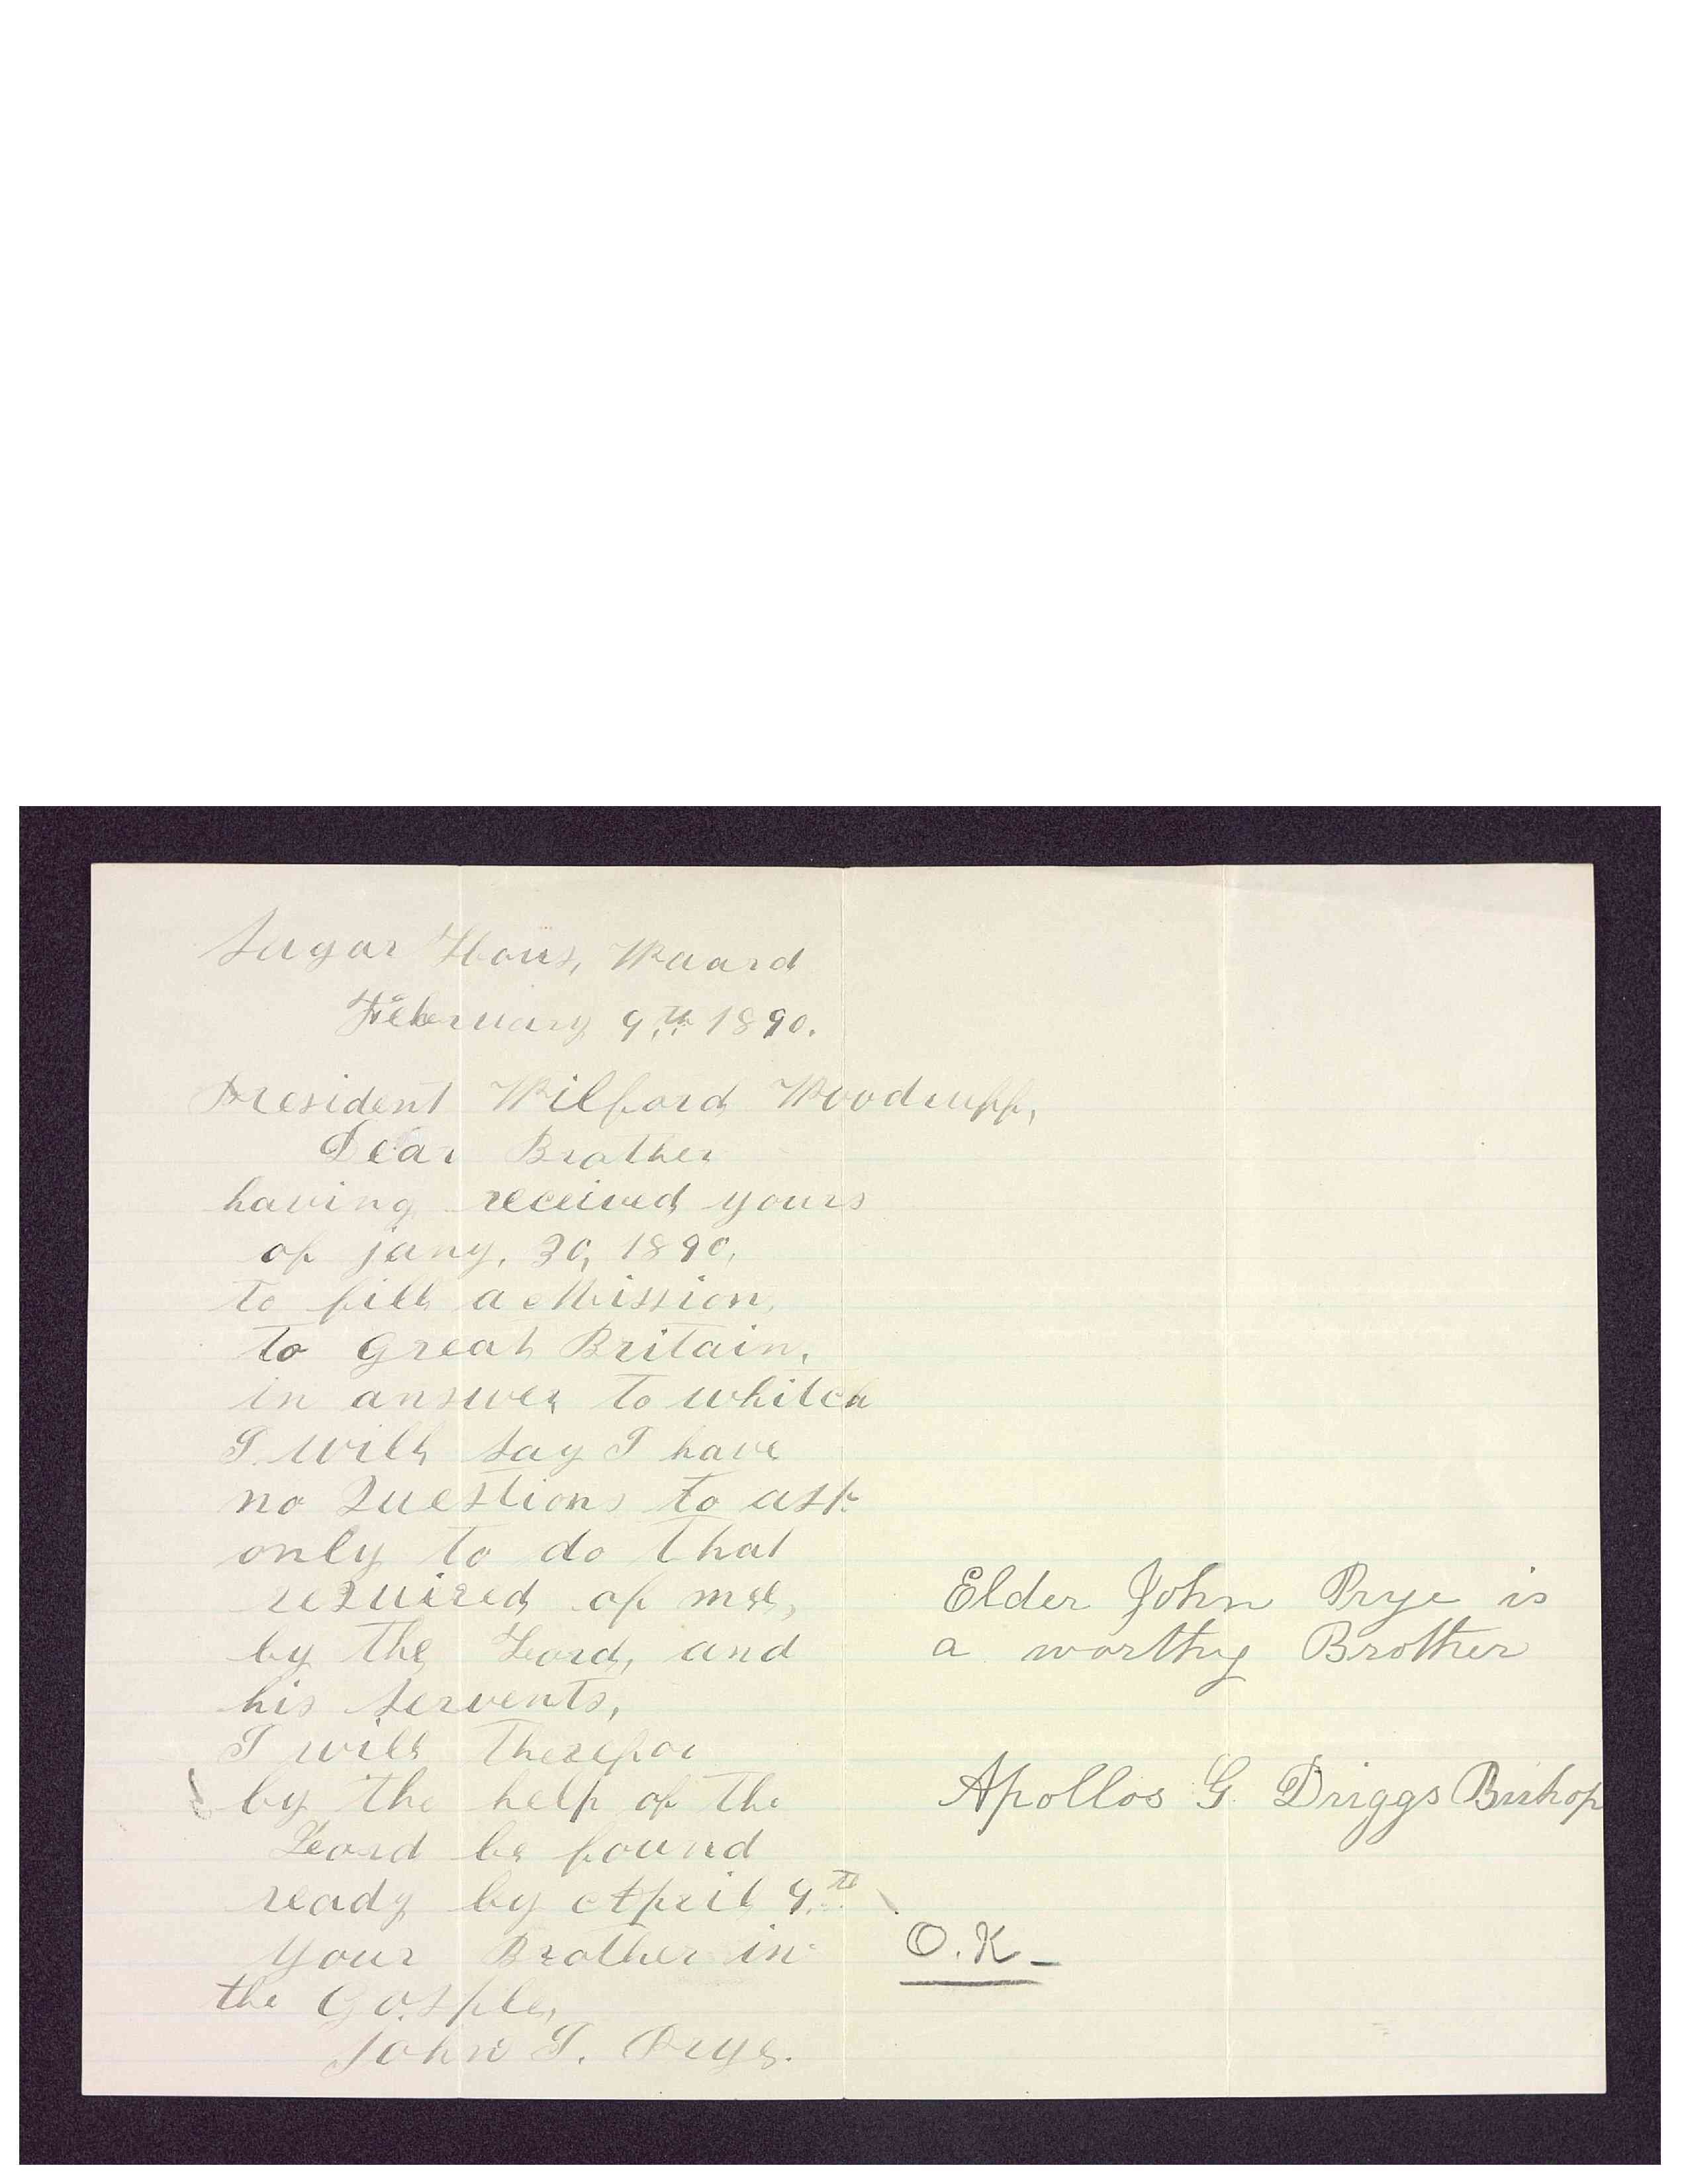 Sugar Hous, Waard
February 9,th 1890.
President Wilford Woodruff,
Dear Brother
having received yours
of jany. 30, 1890,
to fill a Mission,
to Great Britain,
in answer to whitch
I will say I have
no Questions to ask
only to do that
reQuired of mee,
by the Lord, and
his servents,
I will therefor
by the help of the
Lord be found
ready by April 9.th
Your Brother in
the Gosple,
John Prye.
Elder John Prye is
a worthy Brother
Apollos G. Driggs Bishop
O.K_